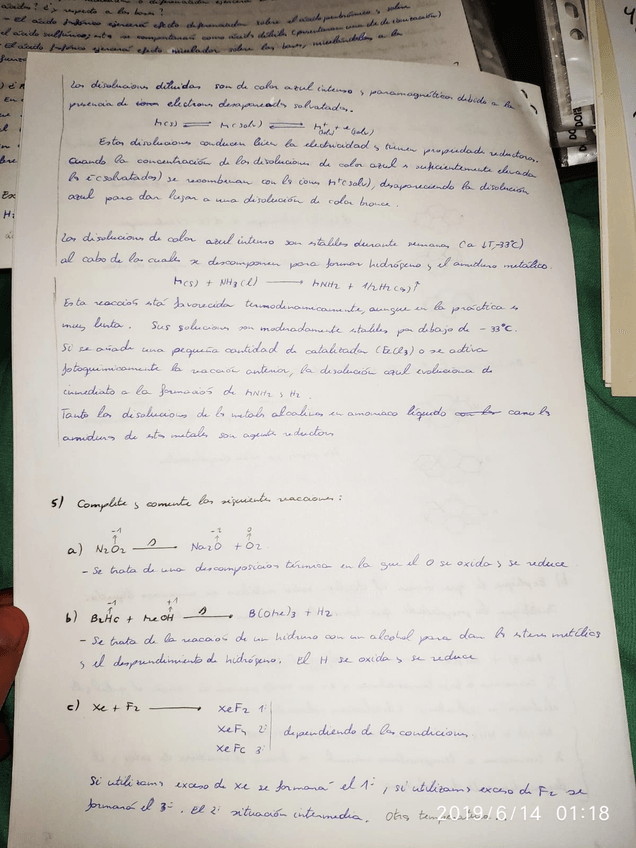 - El ácido sulfúrico ejercerá efecto diferenciador sobre el
el ácido sulfúrico, se comportarán como ácidos débiles
- El ácido sulfúrico ejercerá efecto nivelador sobre las bases, nivelándolas a la
Las disoluciones diluidas son de color azul intenso y paramagnéticas debido a la
presencia de iones electrones desapareados solvatados.
M(s) ⇌ M(solv) ⇌ M⁺(solv) + e⁻(solv)
Estas disoluciones conducen bien la electricidad y tienen propiedades reductoras.
Cuando la concentración de las disoluciones de color azul es suficientemente elevada
los e⁻(solvatados) se recombinan con los iones M⁺(solv), desapareciendo la disolución
azul para dar lugar a una disolución de color bronce.
Las disoluciones de color azul intenso son estables durante semanas (a ↓T, -33ºC)
al cabo de las cuales se descomponen para formar hidrógeno y el amiduro metálico.
M(s) + NH3(l) ⟶ MNH2 + 1/2 H2(g)↑
Esta reacción está favorecida termodinámicamente, aunque en la práctica es
muy lenta. Sus soluciones son moderadamente estables por debajo de -33ºC.
Si se añade una pequeña cantidad de catalizador (FeCl3) o se activa
fotoquímicamente la reacción anterior, la disolución azul evoluciona de
inmediato a la formación de MNH2 y H2.
Tanto las disoluciones de los metales alcalinos en amoniaco líquido como los
amiduros de estos metales son agentes reductores
5) Complete y comente las siguientes reacciones:
-1 -2 0
a) Na2O2 Δ⟶ Na2O + O2
- Se trata de una descomposición térmica en la que el O se oxida y se reduce
-1 +1
b) B2H6 + MeOH Δ⟶ B(OMe)3 + H2
- Se trata de la reacción de un hidruro con un alcohol para dar los ésteres metílicos
y el desprendimiento de hidrógeno. El H se oxida y se reduce
c) Xe + F2 ⟶ XeF2 1º
XeF4 2º dependiendo de las condiciones.
XeF6 3º
Si utilizamos exceso de Xe se formará el 1º, si utilizamos exceso de F2 se
formará el 3º. El 2º situación intermedia. Otros
2019/6/14 01:18